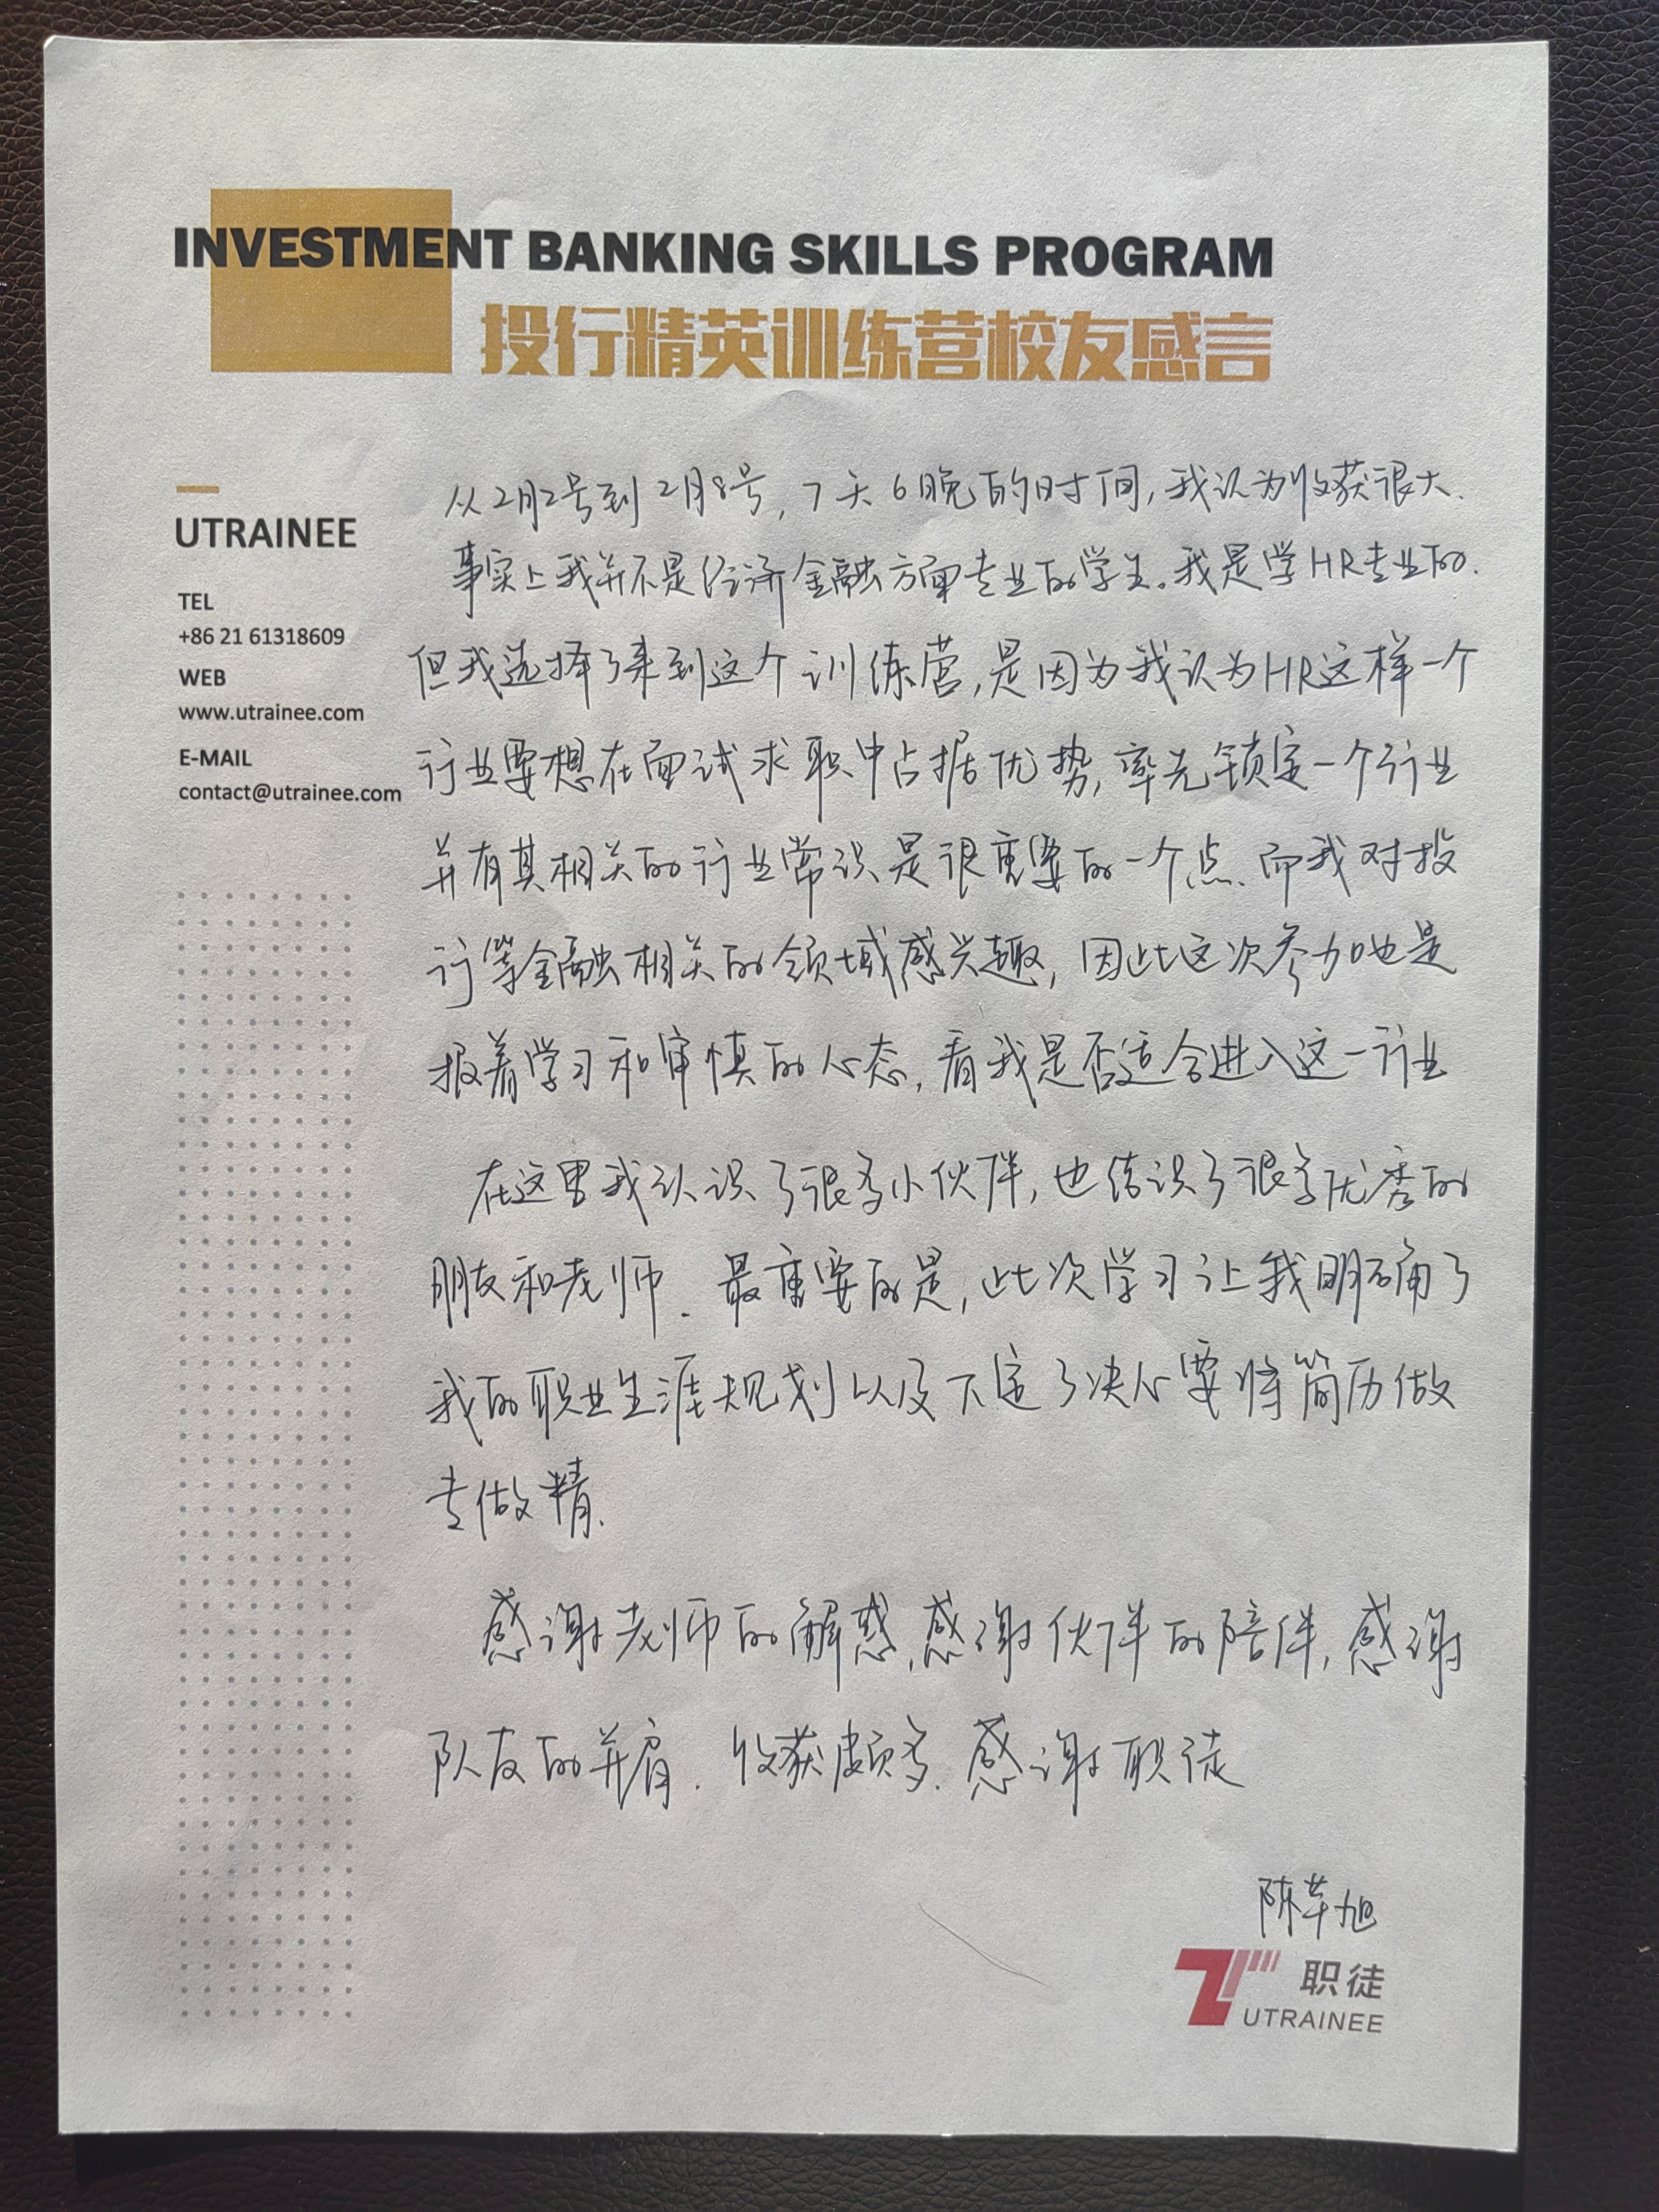 INVESTMENT BANKING SKILLS PROGRAM
投行精英训练营校友感言
UTRAINEE
TEL
+86 21 61318609
WEB
www.utrainee.com
E-MAIL
contact@utrainee.com
从2月2号到2月8号,7天6晚的时间,我认为收获很大.
事实上我并不是经济金融方面专业的学生。我是学HR专业的.
但我选择了来到这个训练营,是因为我认为HR这样一个
行业要想在面试求职中占据优势,率先锁定一个行业
并有其相关的行业常识是很重要的一个点.而我对投
行等金融相关的领域感兴趣,因此这次参加也是
报着学习和审慎的心态,看我是否适合进入这一行业
在这里我认识了很多小伙伴,也结识了很多优秀的
朋友和老师.最重要的是,此次学习让我明确了
我的职业生涯规划以及下定了决心要将简历做
专做精.
感谢老师的解惑,感谢伙伴的陪伴,感谢
队友的并肩.收获颇多.感谢职徒
陈莘旭
职徒
UTRAINEE